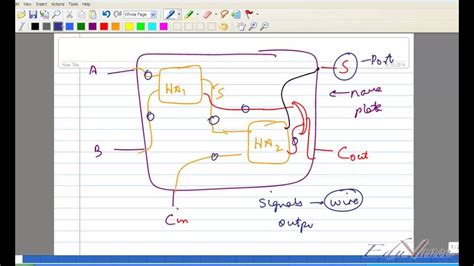 Edit View Insert Actions Tools Help
Whole Page
Note Title
A
HA1
S
S
Port
name
plate
B
HA2
Cout
Cin
signals
wire
outpu
Eduvance